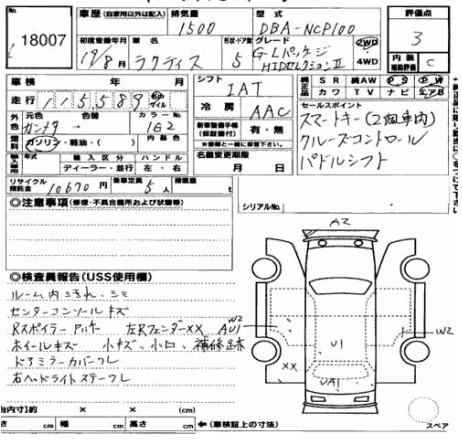 18007
車歴 (自家用以外は記入)
排気量 1500
型式 DBA-NCP100
評価点 3
初度登録年月 19/8月
車名 ラクティス
形状・ドア数 5
グレード G-Lパッケージ HIDセレクションII
2WD
4WD
内装 補助評価 C
車検 年 月
シフト IAT
純正 SR 純AW PS PW
カワ TV ナビ エアB
走行 115589 km マイル
冷房 AAC
セールスポイント
スマートキー(2個車内)
クルーズコントロール
パドルシフト
外色 元色 色替 カラーNo.
ガンメタ 1E2
燃料 ガソリン・軽油・( ) 内装色
(保証書付) 有・無
輸入車 年式 輸入区分 ハンドル
ディーラー・並行 左・右
名義変更期限 月 日
リサイクル預託金 10670円
乗車定員 5人
積載量 t
◎注意事項(修復・不具合箇所および状態等)
シリアルNo.
A2
◎検査員報告(USS使用欄)
ルーム内汚れ、シミ
センターコンソールキズ
Rスポイラー 左Rフェンダー××
W2
AU1
ホイールキズ 小キズ、小凹、補修跡
ドアミラーカバーフレ
右ヘッドライトステーフレ
W2
U1
××
UA1
内寸)約 × × (cm)
さ cm 幅 cm 高さ cm ←(車検証上の寸法)
スペア